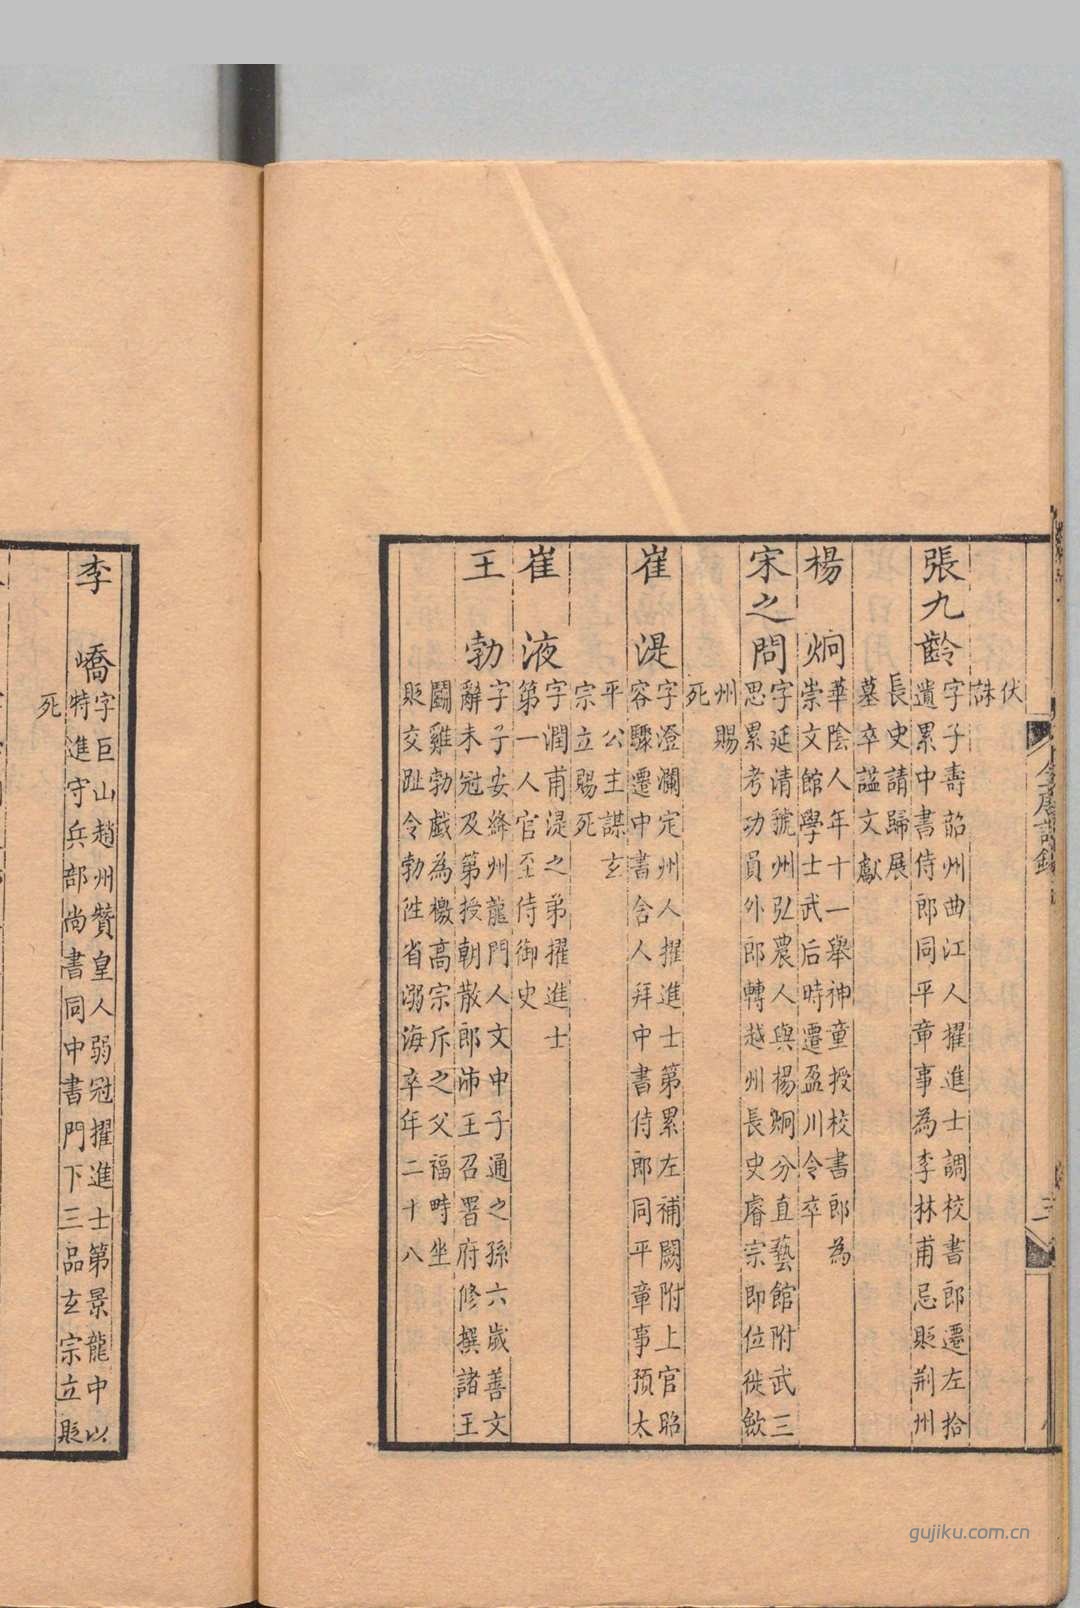 全唐詩錄
三
伏
誅
張九齡
字子壽韶州曲江人擢進士調校書郎遷左拾
遺累中書侍郎同平章事為李林甫忌貶荆州
長史請歸展
墓卒諡文獻
楊炯
華陰人年十一舉神童授校書郎為
崇文館學士武后時遷盈川令卒
宋之問
字延清虢州弘農人與楊炯分直藝館附武三
思累考功員外郎轉越州長史睿宗即位徙欽
州賜
死
崔湜
字澄瀾定州人擢進士第累左補闕附上官昭
容驟遷中書舍人拜中書侍郎同平章事預太
平公主謀玄
宗立賜死
崔液
字潤甫湜之弟擢進士
第一人官至侍御史
王勃
字子安絳州龍門人文中子通之孫六歲善文
辭未冠及第授朝散郎沛王召署府修撰諸王
鬭雞勃戲為檄高宗斥之父福畤坐
貶交趾令勃往省溺海卒年二十八
李嶠
字巨山趙州贊皇人弱冠擢進士第景龍中以
特進守兵部尚書同中書門下三品玄宗立貶
死
gujiku.com.cn